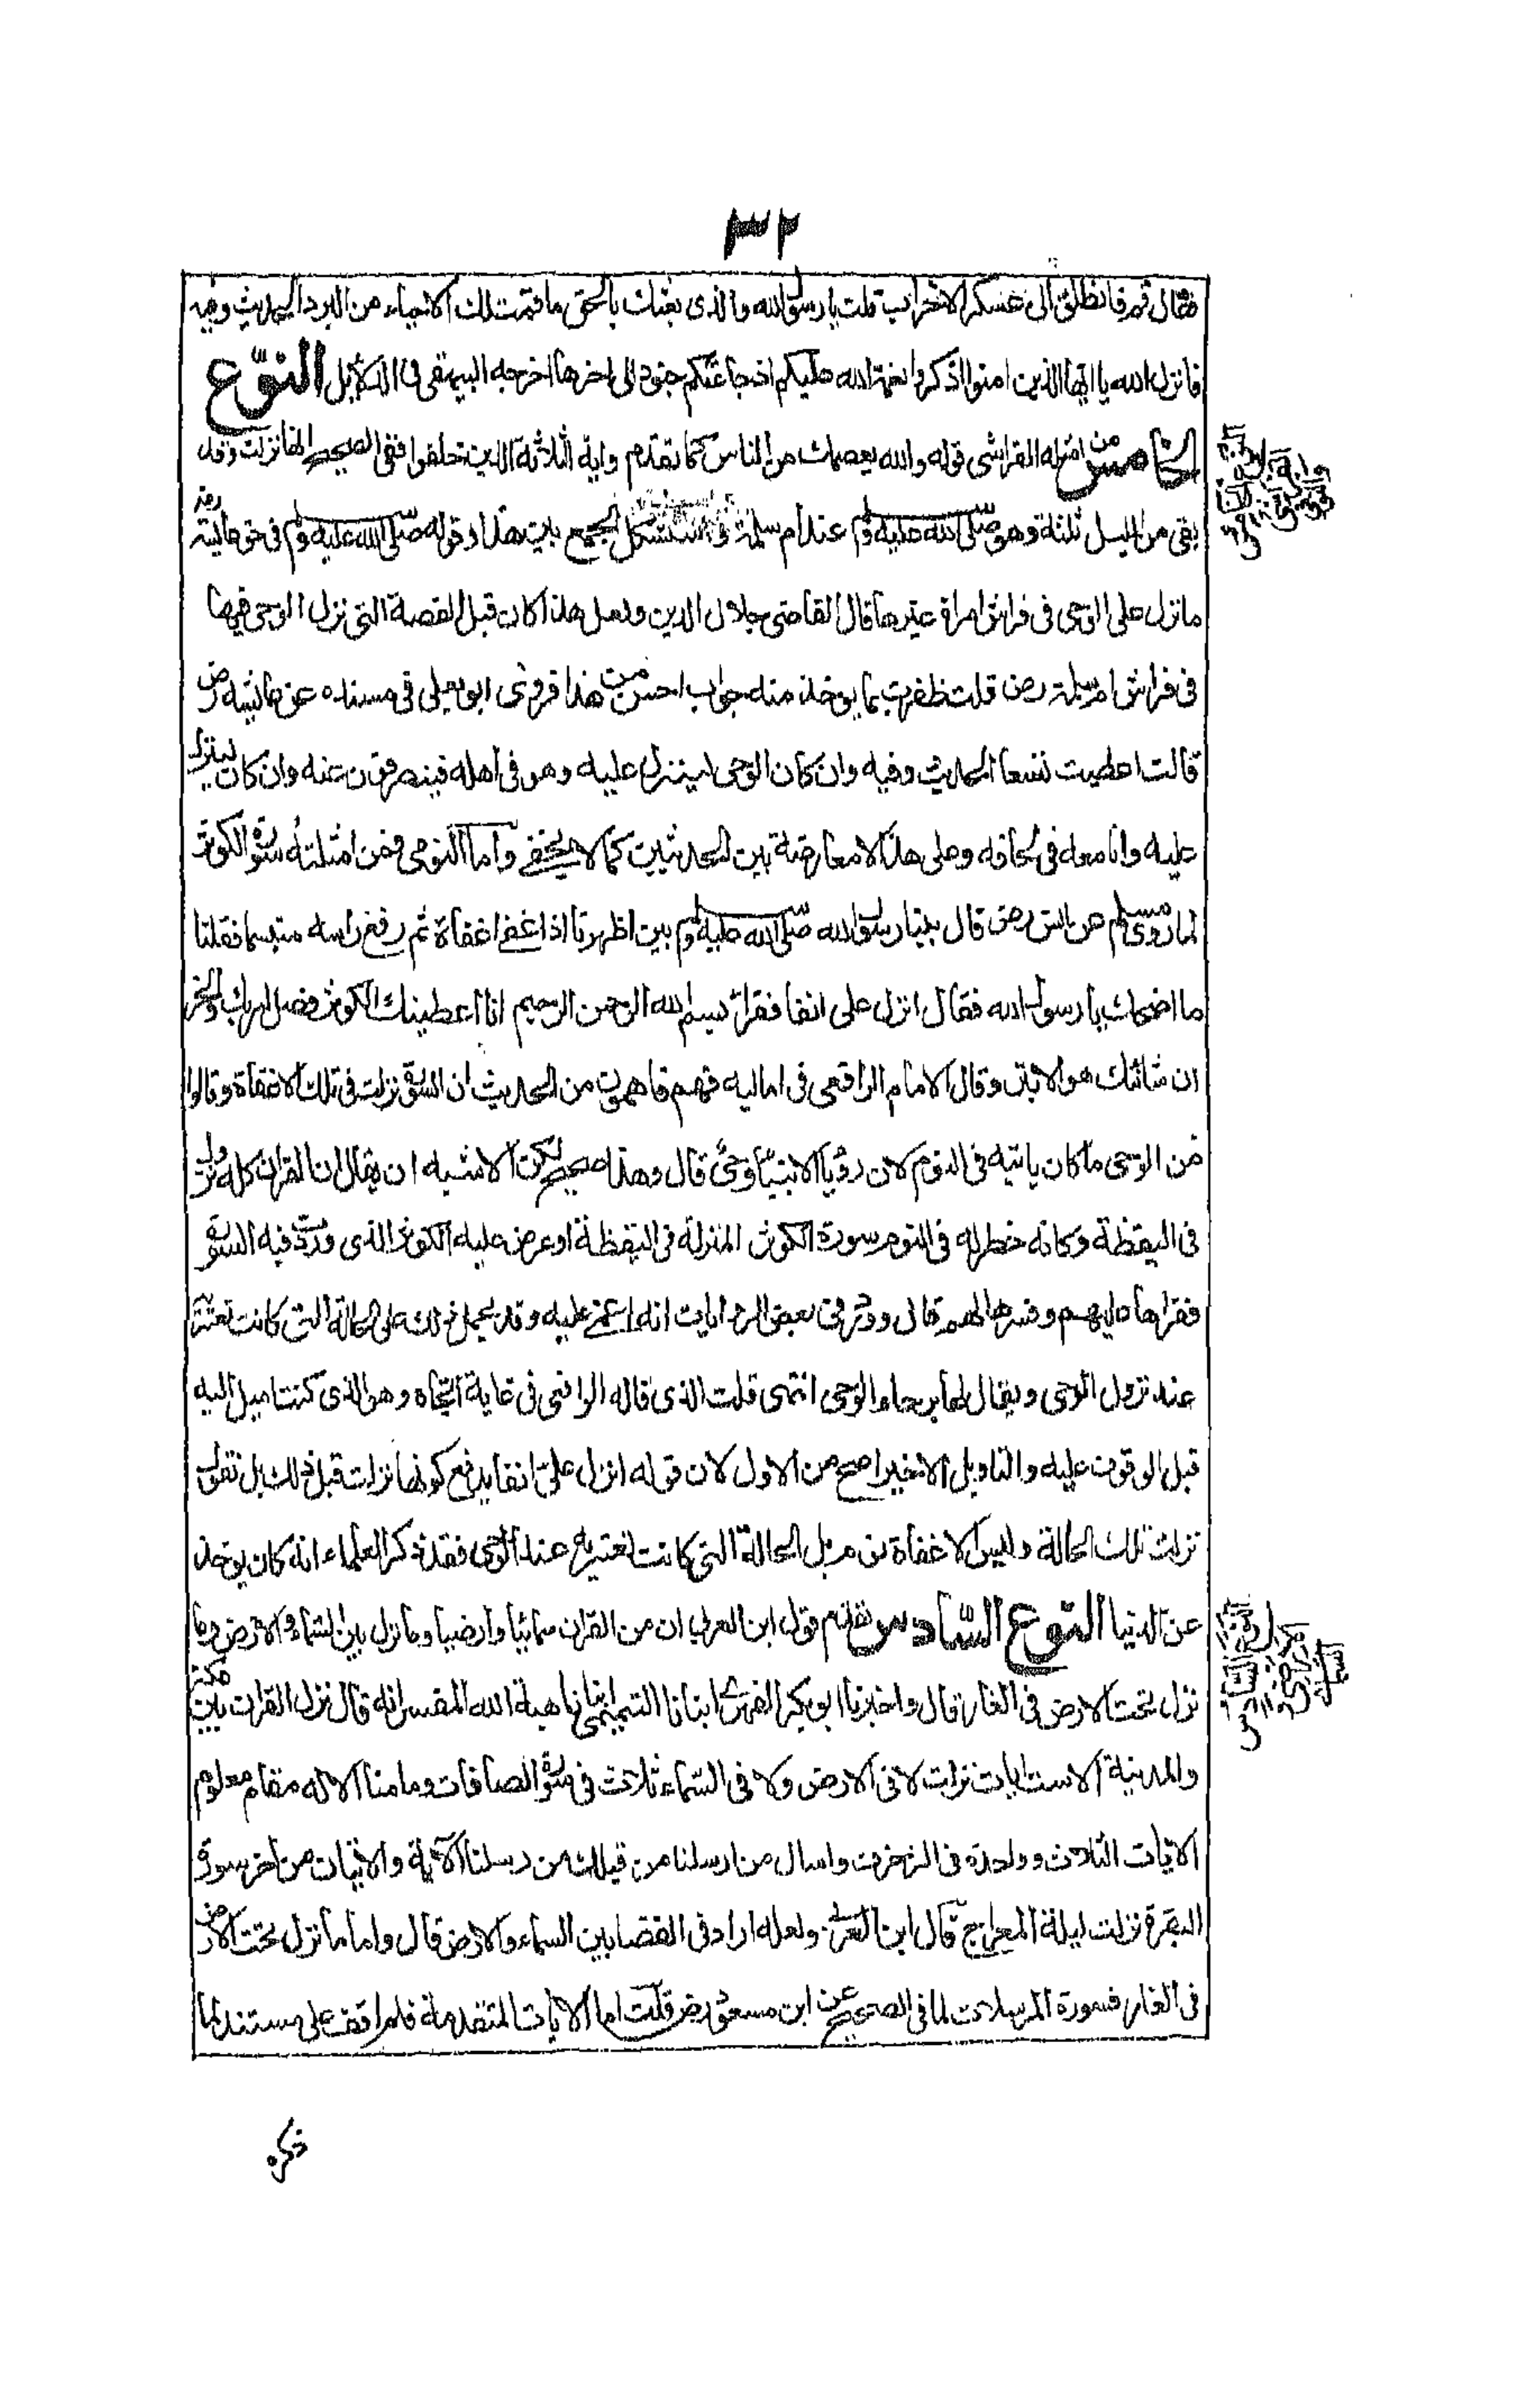 ٣٢
فقال قم فانطلق الى عسكر الاحزاب قلت يا رسول الله والذى بعثك بالحق ما قمت لك الا حياء من البرد الحديث وفيه
فانزل الله يا ايها الذين امنوا اذكروا نعمة الله عليكم اذ جاءتكم جنود الى اخرها اخرجه البيهقى فى الدلائل النوع
الخامس من امثلة الفراشى قوله والله يعصمك من الناس كما تقدم واية الثلثة الذين خلفوا ففى الصحيح انها نزلت وقد
بقى من الليل ثلثة وهو صلى الله عليه وسلم عند ام سلمة واستشكل الجمع بين هذا وقوله صلى الله عليه وسلم فى حق عائشة رض
ما نزل على الوحى فى فراش امراة غيرها قال القاضى جلال الدين ولعل هذا كان قبل القصة التى نزل الوحى فيها
فى فراش ام سلمة رض قلت ظفرت بما يوخذ منه جواب احسن من هذا فروى ابو يعلى فى مسنده عن عائشة رض
قالت اعطيت تسعا الحديث وفيه وان كان الوحى لينزل عليه وهو فى اهله فينصرفون عنه وان كان لينزل
عليه وانا معه فى لحافه وعلى هذا لا معارضة بين الحديثين كما لا يخفى واما النومى فمن امثلته سورة الكوثر
لما روى مسلم عن انس رض قال بينا رسول الله صلى الله عليه وسلم بين اظهرنا اذ اغفى اغفاة ثم رفع راسه متبسما فقلنا
ما اضحكك يا رسول الله فقال انزل على انفا فقرا بسم الله الرحمن الرحيم انا اعطينك الكوثر فصل لربك وانحر
ان شانئك هو الابتر وقال الامام الرافعى فى اماليه فهم فاهمون من الحديث ان السورة نزلت فى تلك الاغفاة وقالوا
من الوحى ما كان ياتيه فى النوم لان رؤيا الانبياء وحى قال وهذا صحيح لكن الاشبه ان يقال ان القران كله نزل
فى اليقظة وكانه خطر له فى النوم سورة الكوثر المنزلة فى اليقظة او عرض عليه الكوثر الذى وردت فيه السورة
فقراها عليهم وفسرها لهم قال وورد فى بعض الروايات انه اغمى عليه وقد يحمل ذلك على الحالة التى كانت تعتريه
عند نزول الوحى ويقال لها برحاء الوحى انتهى قلت الذى قاله الرافعى فى غاية الاتجاه وهو الذى كنت اميل اليه
قبل الوقوف عليه والتاويل الاخير اصح من الاول لان قوله انزل على انفا يدفع كونها نزلت قبل ذلك بل نقول
نزلت تلك الحالة وليس الاغفاة نوم بل الحالة التى كانت تعتريه عند الوحى فقد ذكر العلماء انه كان يوخذ
عن الدنيا النوع السادس تقدم قول ابن العربى ان من القران سمائيا وارضيا وما نزل بين السماء والارض وما
نزل تحت الارض فى الغار قال واخبرنا ابو بكر الفهرى انبانا التميمى انبانا هبة الله المفسر انه قال نزل القران بين مكة
والمدينة الا ست ايات نزلت لا فى الارض ولا فى السماء ثلاث فى سورة الصافات وما منا الا له مقام معلوم
الايات الثلاث وواحدة فى الزخرف واسال من ارسلنا من قبلك من رسلنا الآية والايتان من اخر سورة
البقرة نزلت ليلة المعراج قال ابن العربى ولعله اراد فى الفضا بين السماء والارض قال واما ما نزل تحت الارض
فى الغار فسورة المرسلات لما فى الصحيح عن ابن مسعود رض قلت اما الايات المتقدمة فلم اقف على مستند لما
ذكره